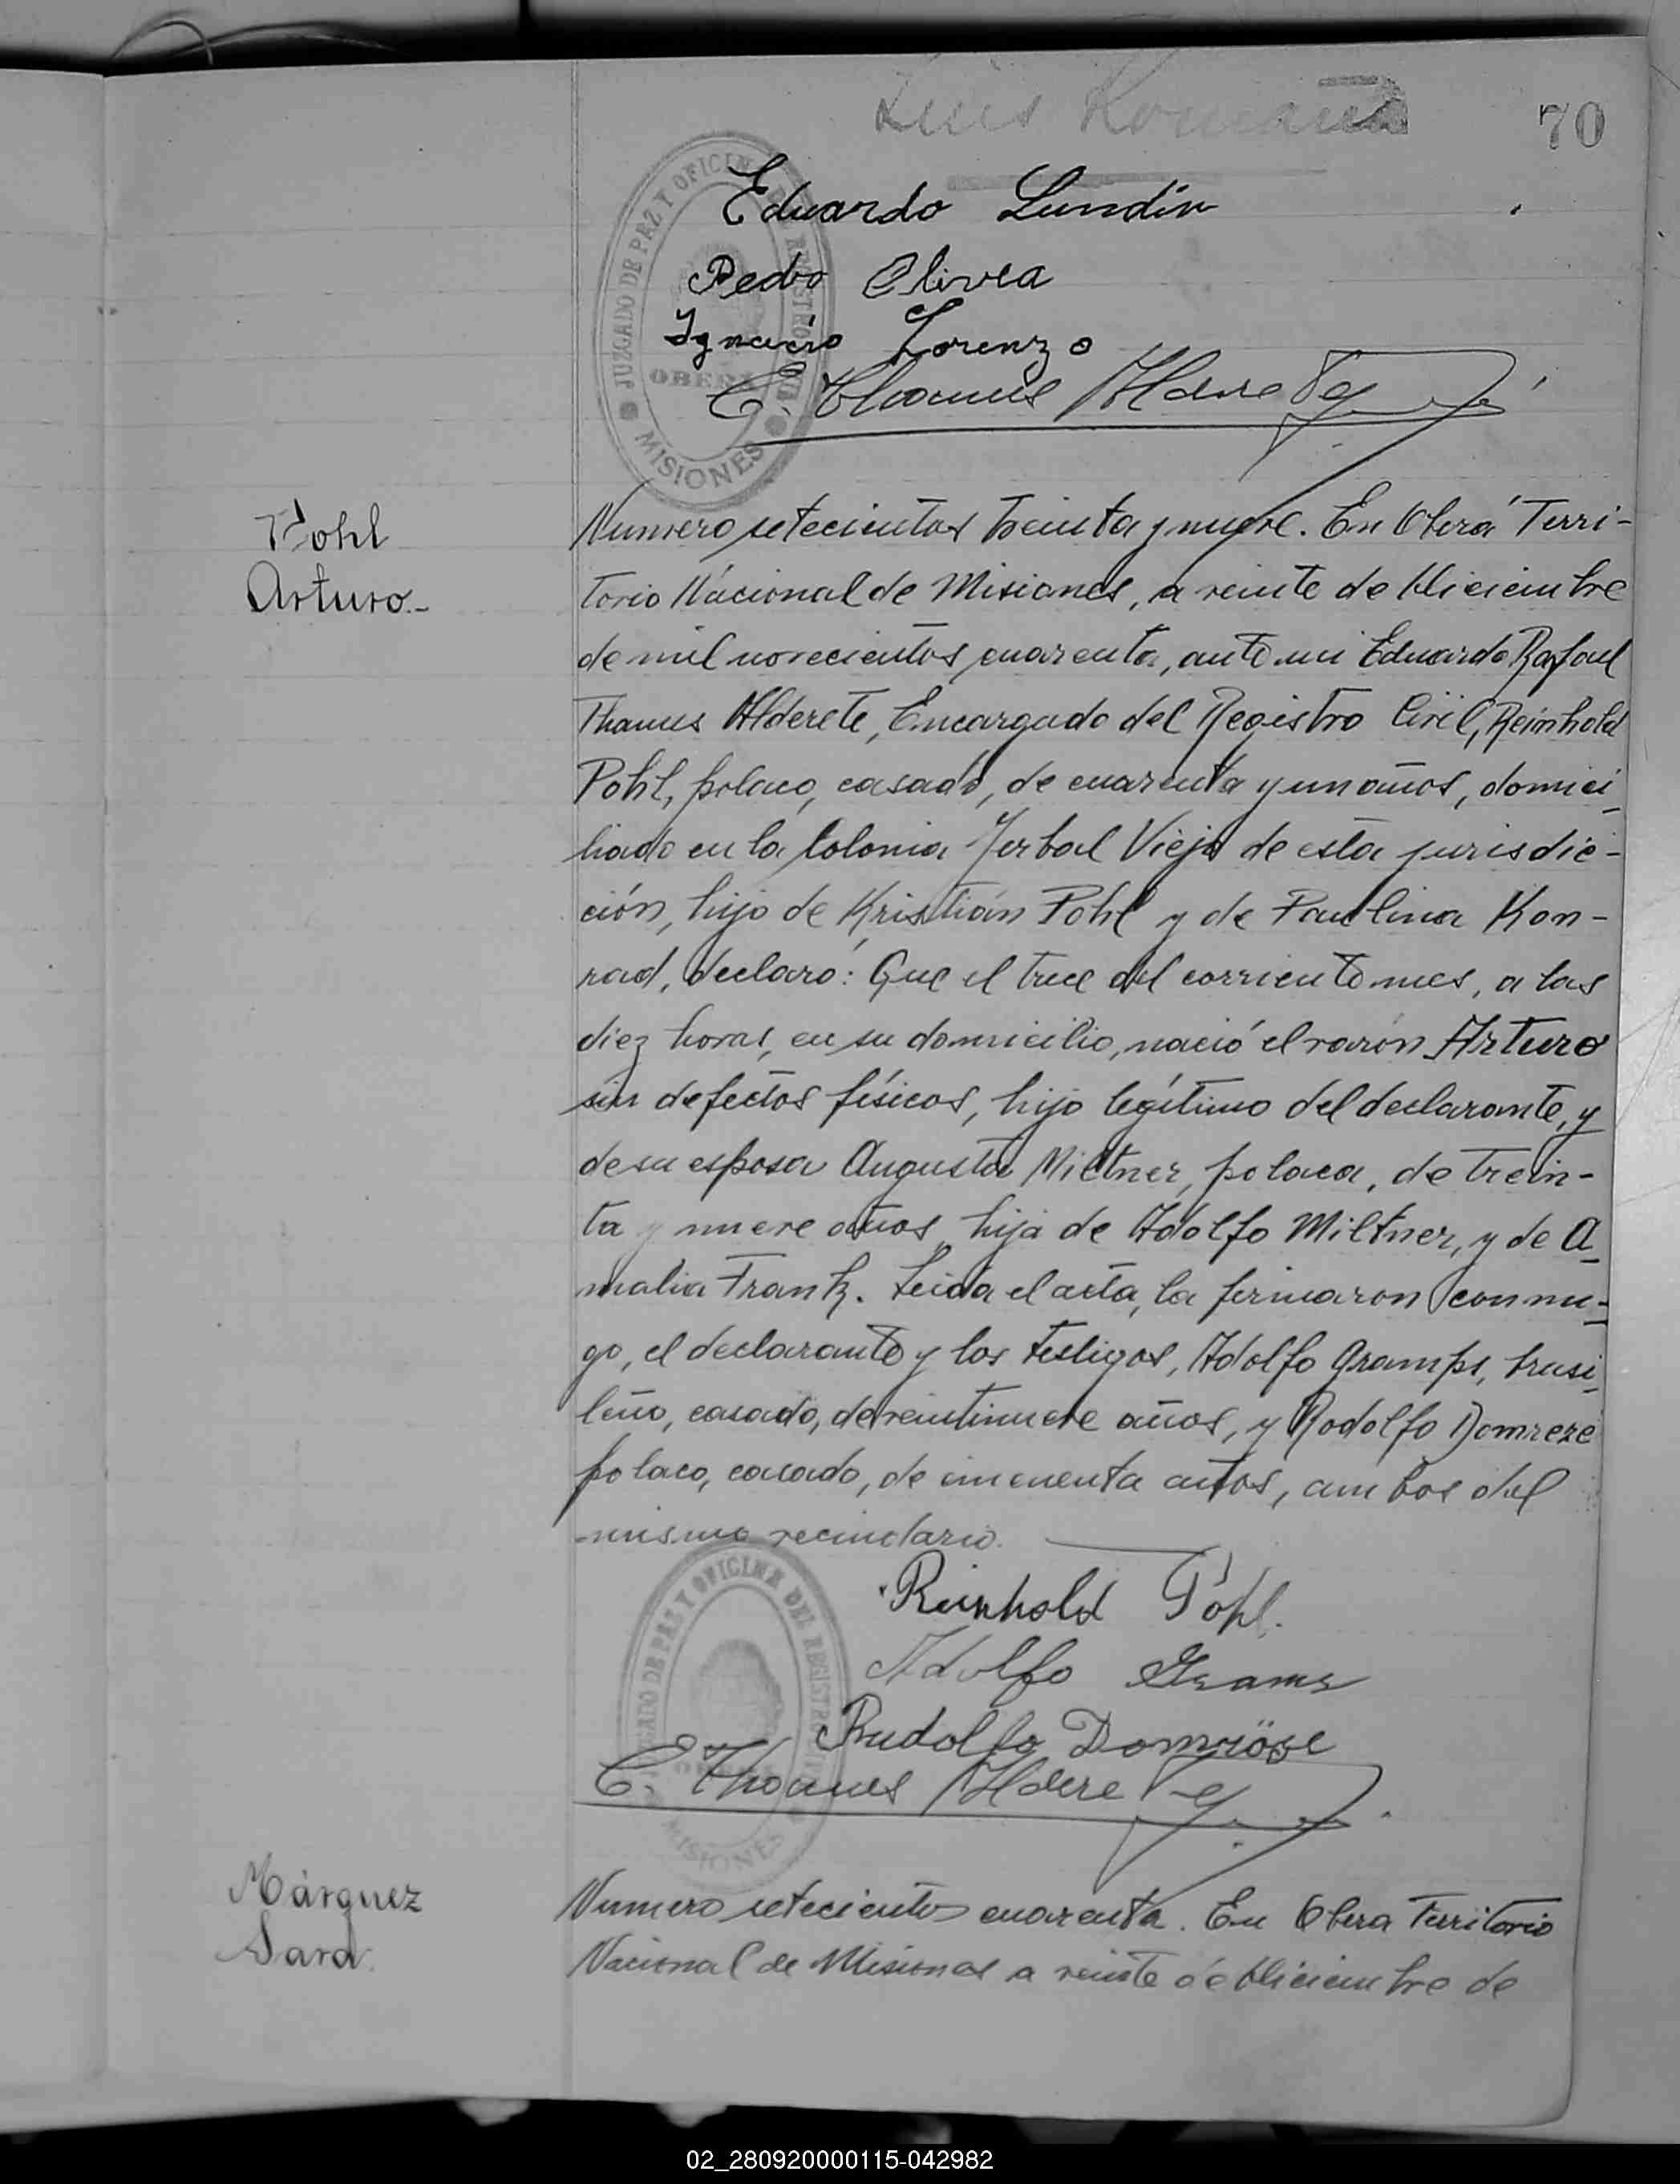 Luis Romano
70
Eduardo Lundin
Pedro Olivea
Ignacio Lorenzo
E. Thamus Alderete
JUZGADO DE PAZ Y OFICINA DEL REGISTRO CIVIL
OBERÁ
MISIONES
Pohl
Arturo.-
Numero setecientos treinta y nueve. En Oberá Terri-
torio Nacional de Misiones, a veinte de Diciembre
de mil novecientos cuarenta, ante mi Eduardo Rafael
Thamus Alderete, Encargado del Registro Civil, Reinhold
Pohl, polaco, casado, de cuarenta y un años, domici-
liado en la Colonia Yerbal Viejo de esta jurisdic-
ción, hijo de Kristián Pohl y de Paulina Kon-
rad, declaró: Que el trece del corriente mes, a las
diez horas, en su domicilio, nació el varón Arturo
sin defectos físicos, hijo legítimo del declarante, y
de su esposa Augusta Miltner, polaca, de trein-
ta y nueve años, hija de Adolfo Miltner, y de A-
malia Frank. Leida el acta, la firmaron conmi-
go, el declarante y los testigos, Adolfo Gramps, brasi-
leño, casado, de veintinueve años, y Rodolfo Domreze
polaco, casado, de cincuenta años, ambos del
mismo vecindario.
Reinhold Pohl.
Adolfo Grams
Rudolfo Domröse
E. Thamus Alderete
JUZGADO DE PAZ Y OFICINA DEL REGISTRO CIVIL
OBERÁ
MISIONES
Márquez
Sara.
Numero setecientos cuarenta. En Obera Territorio
Nacional de Misiones a veinte de Diciembre de
02_280920000115-042982